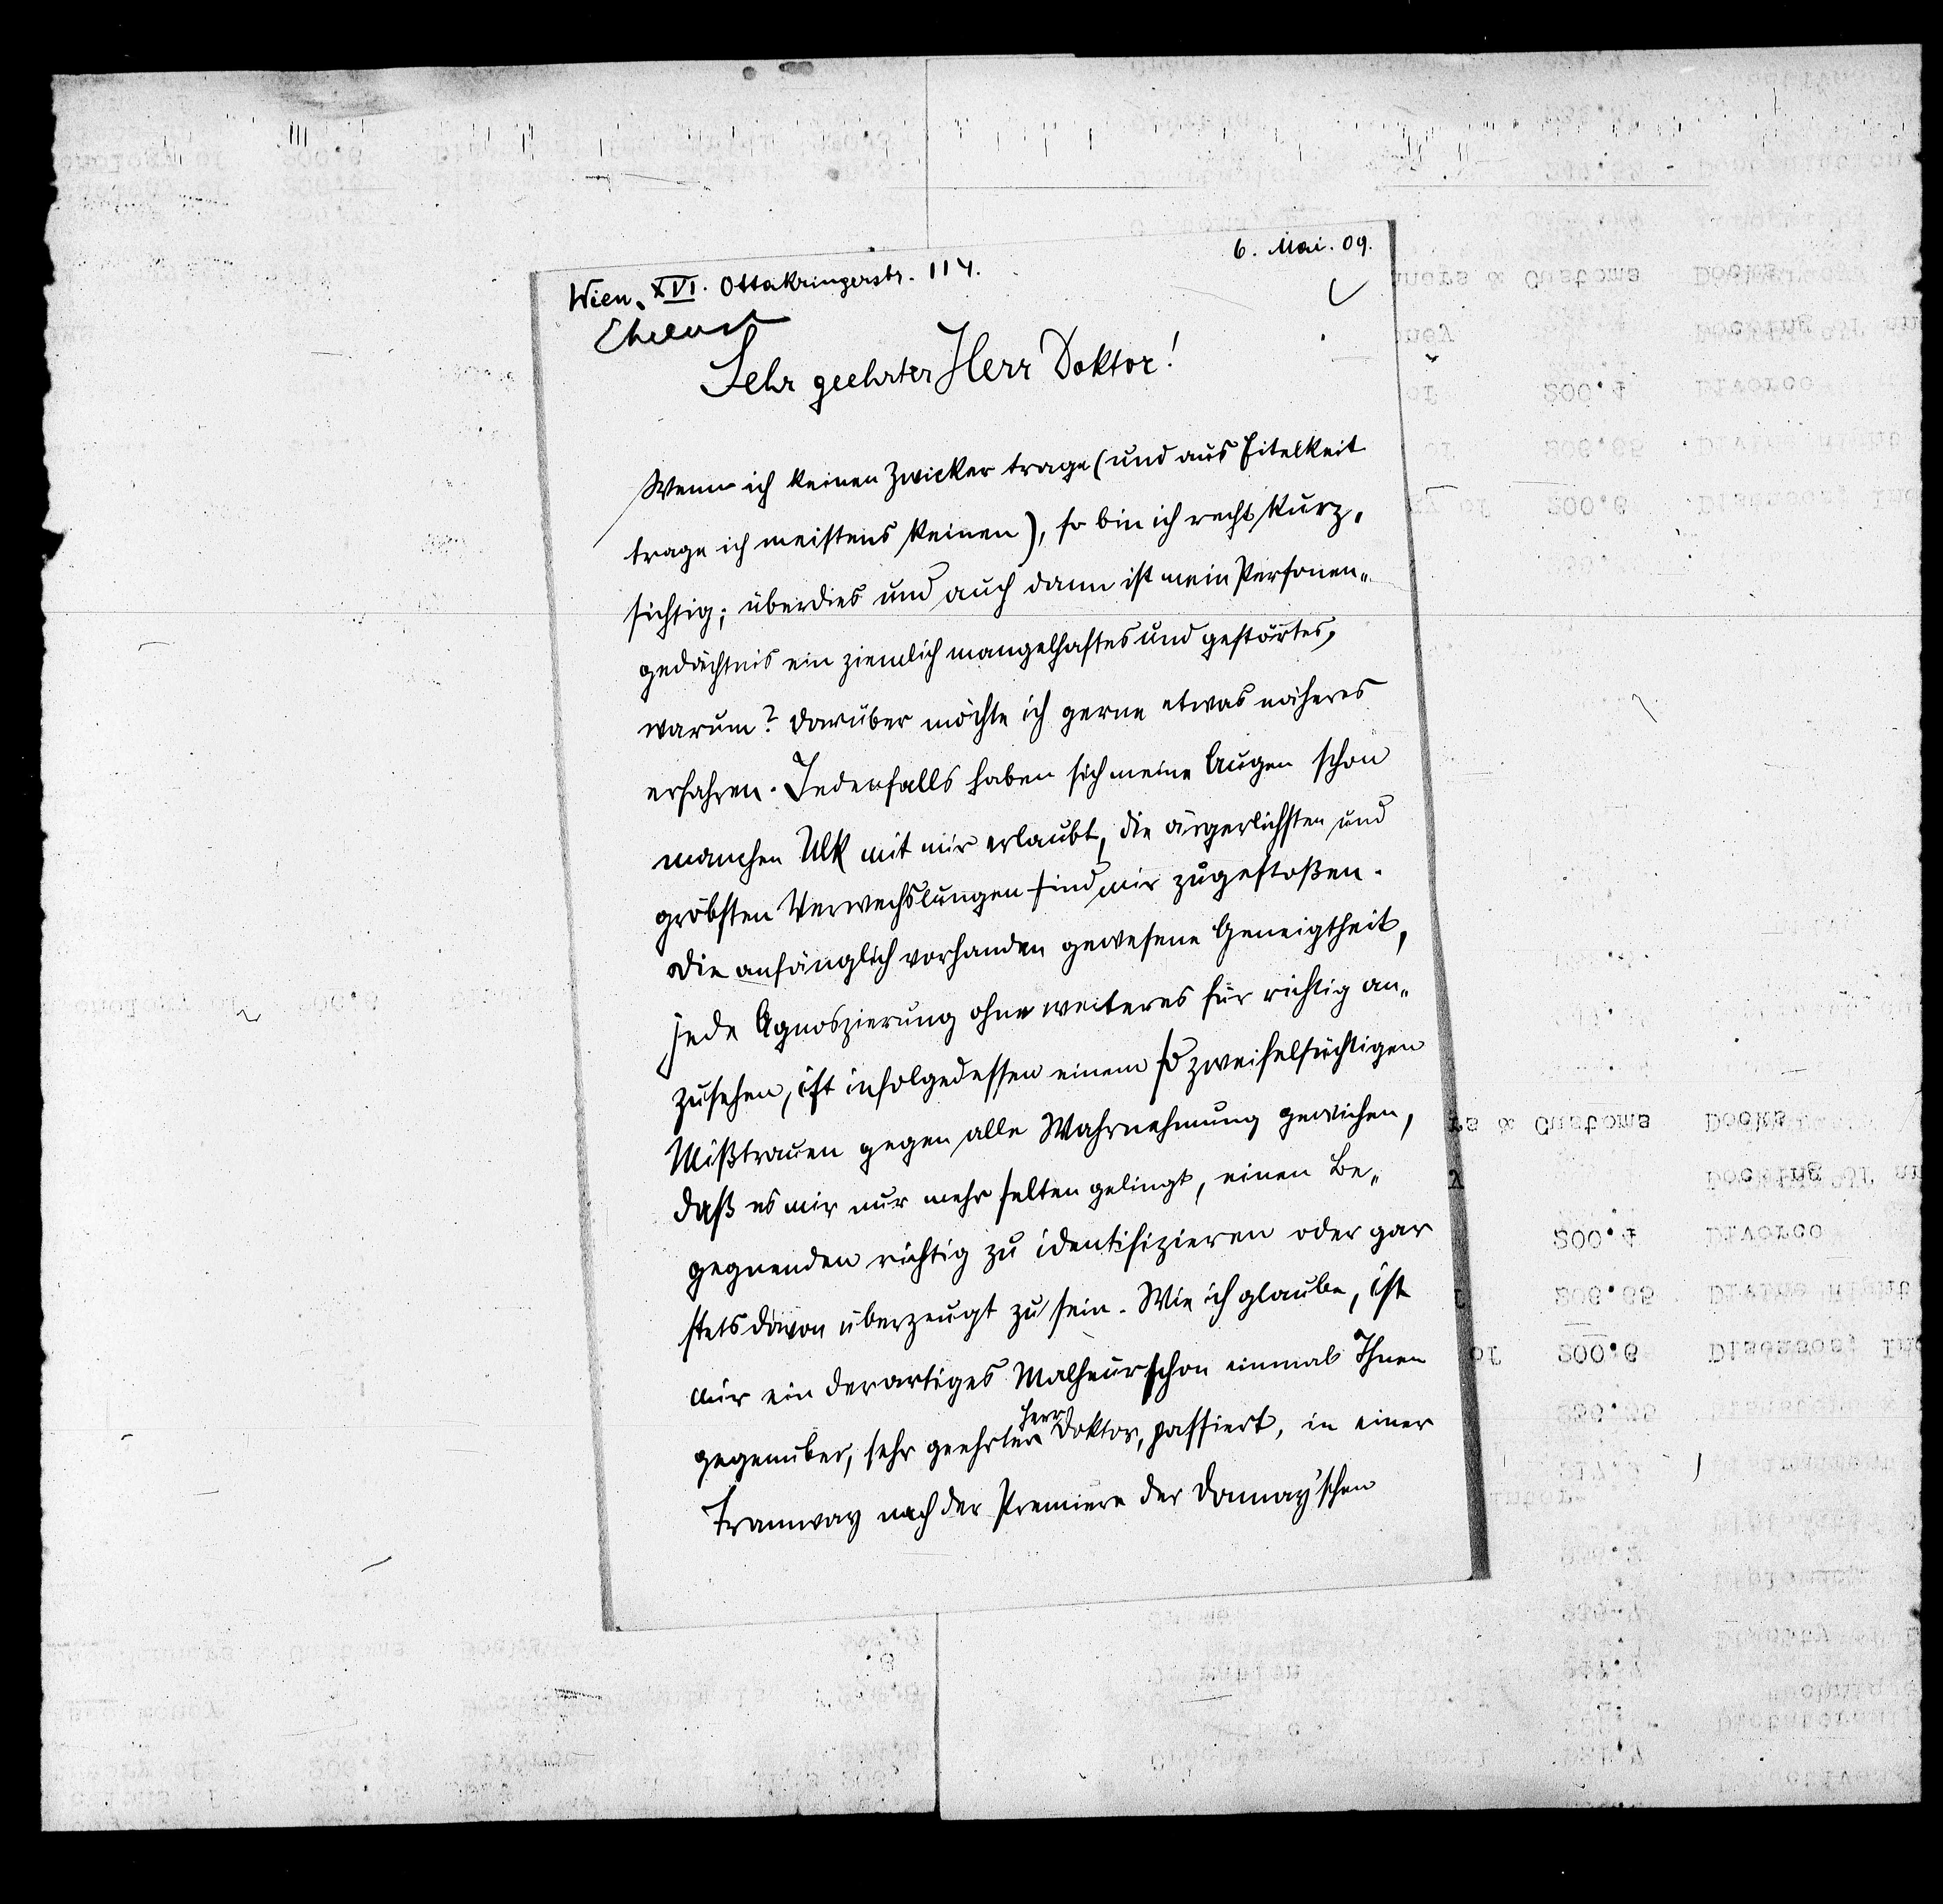 6. Mai. 09.
Wien, XVI. Ottakringerstr. 114.
Sehr geehrter Herr Doktor!
Wenn ich keinen Zwicker trage (und aus Eitelkeit
trage ich meistens keinen), so bin ich recht kurz-
sichtig; überdies und auch dann ist mein Personen-
gedächtnis ein ziemlich mangelhaftes und gestörtes,
warum? darüber möchte ich gerne etwas näheres
erfahren. Jedenfalls haben sich meine Augen schon
manchen Ulk mit mir erlaubt, die ärgerlichsten und
gröbsten Verwechslungen sind mir zugestoßen.
Die anfänglich vorhanden gewesene Geneigtheit,
jede Agnoszierung ohne weiteres für richtig an-
zusehen, ist infolgedessen einem so zweifelsüchtigen
Mißtrauen gegen alle Wahrnehmung gewichen,
daß es mir nur mehr selten gelingt, einen Be-
gegnenden richtig zu identifizieren oder gar
stets davon überzeugt zu sein. Wie ich glaube, ist
mir ein derartiges Malheur schon einmal Ihnen
gegenüber, sehr geehrter Herr Doktor, passiert, in einer
Tramway nach der Premiere der Donnay'schen